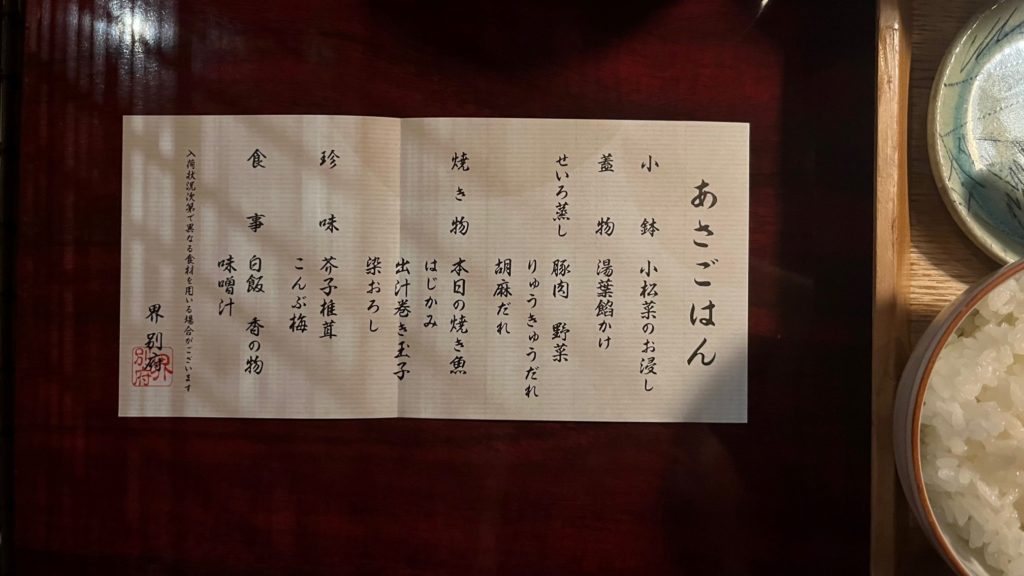 あさごはん
小鉢 小松菜のお浸し
蓋物 湯葉餡かけ
せいろ蒸し 豚肉 野菜
りゅうきゅうだれ
胡麻だれ
焼き物 本日の焼き魚
はじかみ
出汁巻き玉子
染おろし
珍味 芥子椎茸
こんぶ梅
食事 白飯 香の物
味噌汁
入荷状況次第で異なる食材を用いる場合がございます
界 別府
界
別府